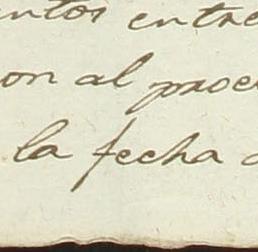 entos entre
on al proce
la fecha d